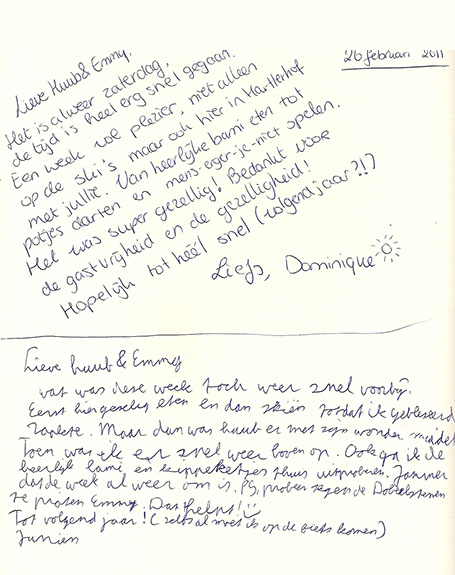 26 februari 2011
Lieve Huub & Emmy,
Het is alweer zaterdag,
de tijd is heel erg snel gegaan.
Een week vol plezier, niet alleen
op de ski's maar ook hier in Hartlerhof
met jullie. Van heerlijke bami eten tot
potjes darten en mens-erger-je-niet spelen.
Het was super gezellig! Bedankt voor
de gastvrijheid en de gezelligheid!
Hopelijk tot héél snel (volgend jaar?!?)
Liefs, Dominique
Lieve huub & Emmy
wat was deze week toch weer snel voorbij.
Eerst hier gezellig eten en dan skiën totdat ik geblesseerd
raakte. Maar dan was huub er met zijn wonder middel
Toen was ik er snel weer boven op. Ook ga ik de
heerlijk bami en thuis uitproberen. Jammer
dat de week al weer om is. PS, probeer tegen de Dobbelstenen
te praten Emmy. Dat helpt!
Tot volgend jaar! (zelfs al moet ik op de fiets komen)